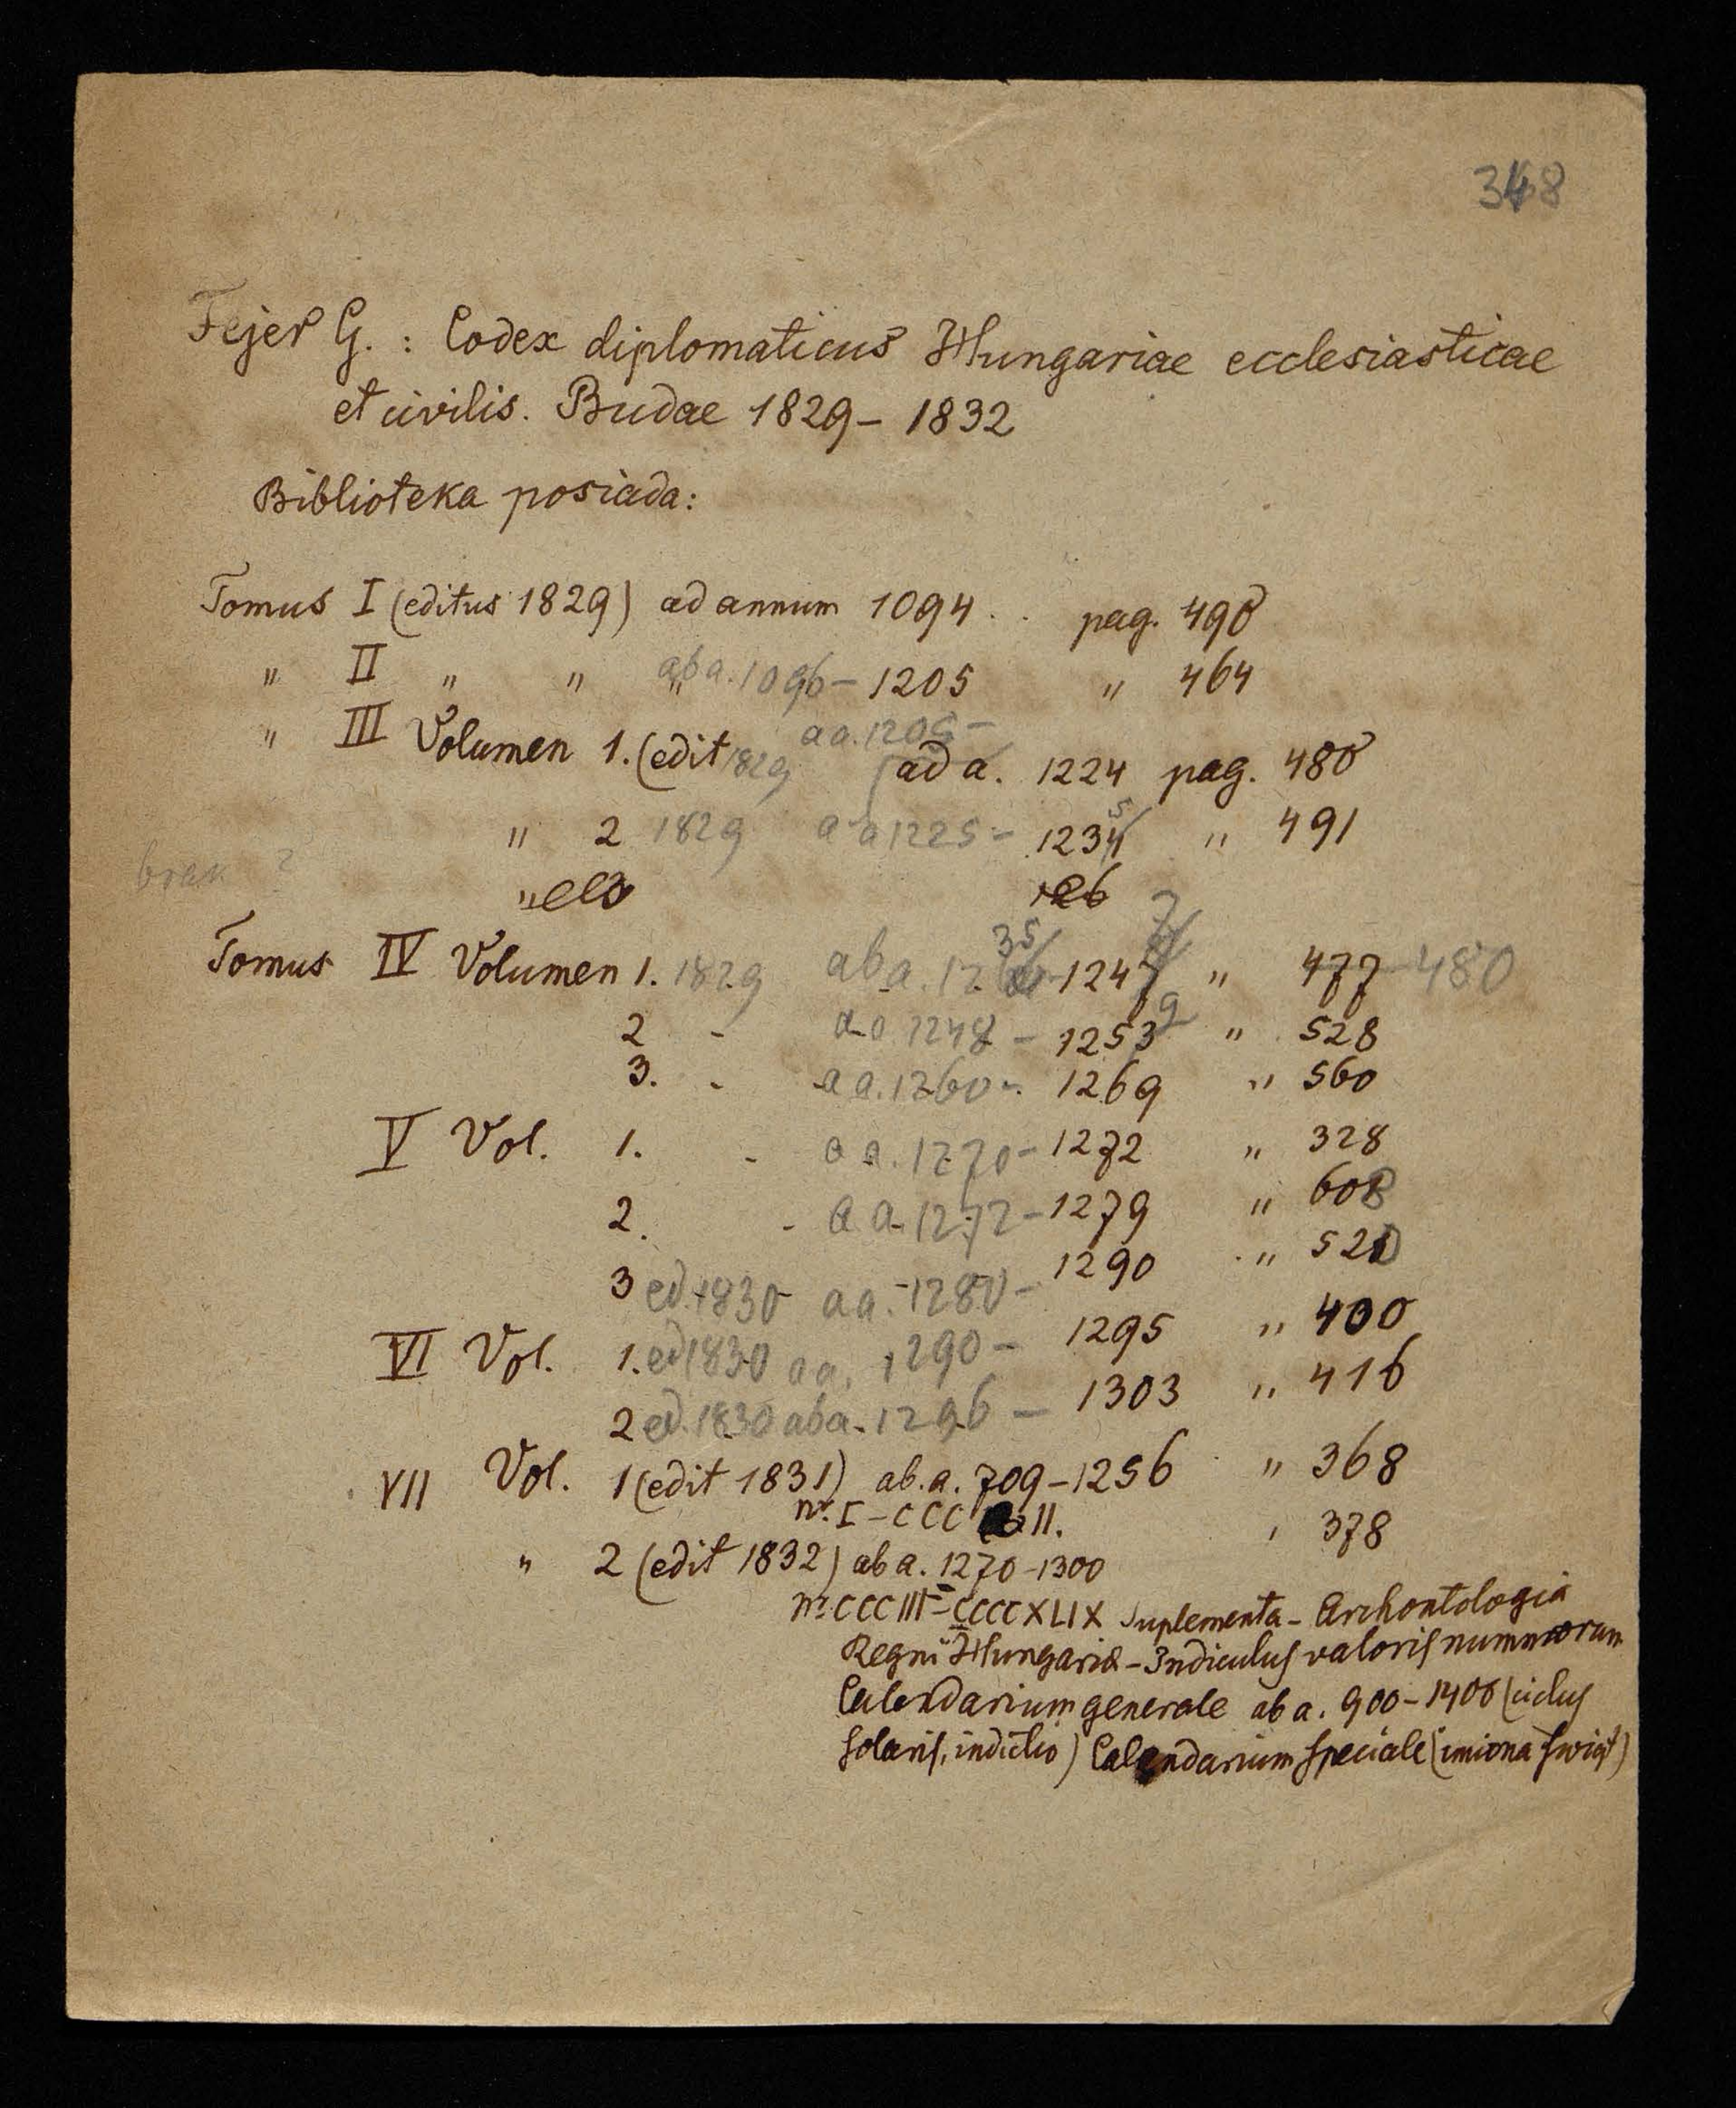 348
Fejer G. : Codex diplomaticus Hungariae ecclesiasticae
et civilis. Budae 1829 – 1832
Biblioteka posiada:
Tomus I (editus 1829) ad annum 1094 . . pag. 490
" II " " ab a. 1096 – 1205 " 464
a a. 1205 –
" III Volumen 1. (edit 1829 ad a. 1224 pag. 480
" 2 1829 a a 1225 – 1234 5/ " 491
brak ?
Tomus IV Volumen 1. 1829 ab a. 12 35/ – 1247 7/ " 477 480
2 - a a. 1248 – 1253 9 " 528
3. - a a. 1260 – 1269 " 560
V Vol. 1. - a a. 1270 – 1272 " 328
2. - a a. 1272 – 1279 " 608
3 ed. 1830 a a. 1280 – 1290 " 520
VI Vol. 1. ed 1830 a a. 1290 – 1295 " 400
2 ed. 1830 ab a. 1296 – 1303 " 416
VII Vol. 1 (edit 1831) ab. a. 709 – 1256 " 368
nr. I – CCC II.
" 2 (edit 1832) ab a. 1270 – 1300 " 378
nr. CCCIII – CCCCXLIX Suplementa – Archontologia
Regni Hungariæ – Indiculus valoris nummorum
Calendarium generale ab a. 900 – 1400 (ciclus
solaris, indictio) Calendarium speciale (imiona świąt)